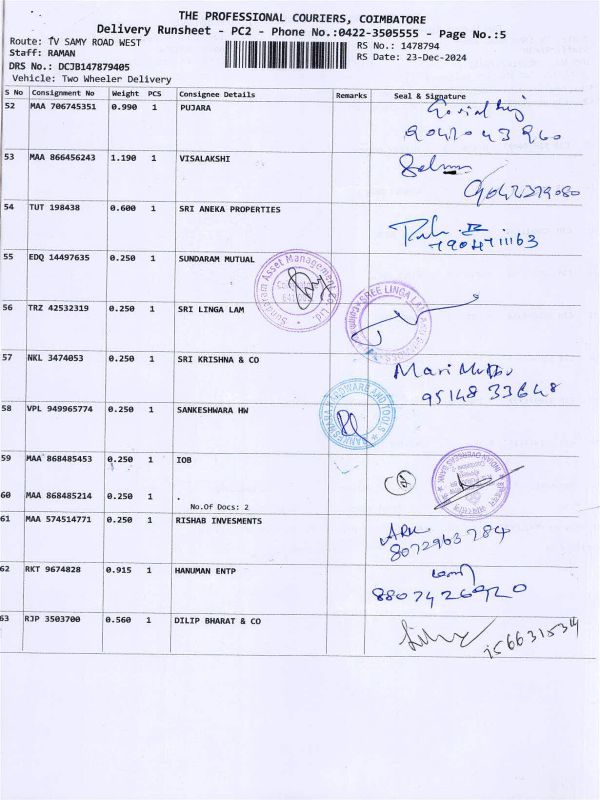 THE PROFESSIONAL COURIERS, COIMBATORE
Delivery Runsheet - PC2 - Phone No.:0422-3505555 - Page No.:5
Route: TV SAMY ROAD WEST
Staff: RAMAN
DRS No.: DCJB147879405
Vehicle: Two Wheeler Delivery
RS No.: 1478794
RS Date: 23-Dec-2024
S No Consignment No Weight PCS Consignee Details Remarks Seal & Signature
52 MAA 706745351 0.990 1 PUJARA
53 MAA 866456243 1.190 1 VISALAKSHI
54 TUT 198438 0.600 1 SRI ANEKA PROPERTIES
7904711163
55 EDQ 14497635 0.250 1 SUNDARAM MUTUAL
Sundaram Asset Management Co. Ltd.
56 TRZ 42532319 0.250 1 SRI LINGA LAM
SREE LINGA LAM
57 NKL 3474053 0.250 1 SRI KRISHNA & CO
Mari Muthu
95148 33648
58 VPL 949965774 0.250 1 SANKESHWARA HW
SANKESWARA HARDWARE AND TOOLS
59 MAA 868485453 0.250 1 IOB
INDIAN OVERSEAS BANK
60 MAA 868485214 0.250 1 .
No.Of Docs: 2
61 MAA 574514771 0.250 1 RISHAB INVESMENTS
8072963284
62 RKT 9674828 0.915 1 HANUMAN ENTP
8807426920
63 RJP 3503700 0.560 1 DILIP BHARAT & CO